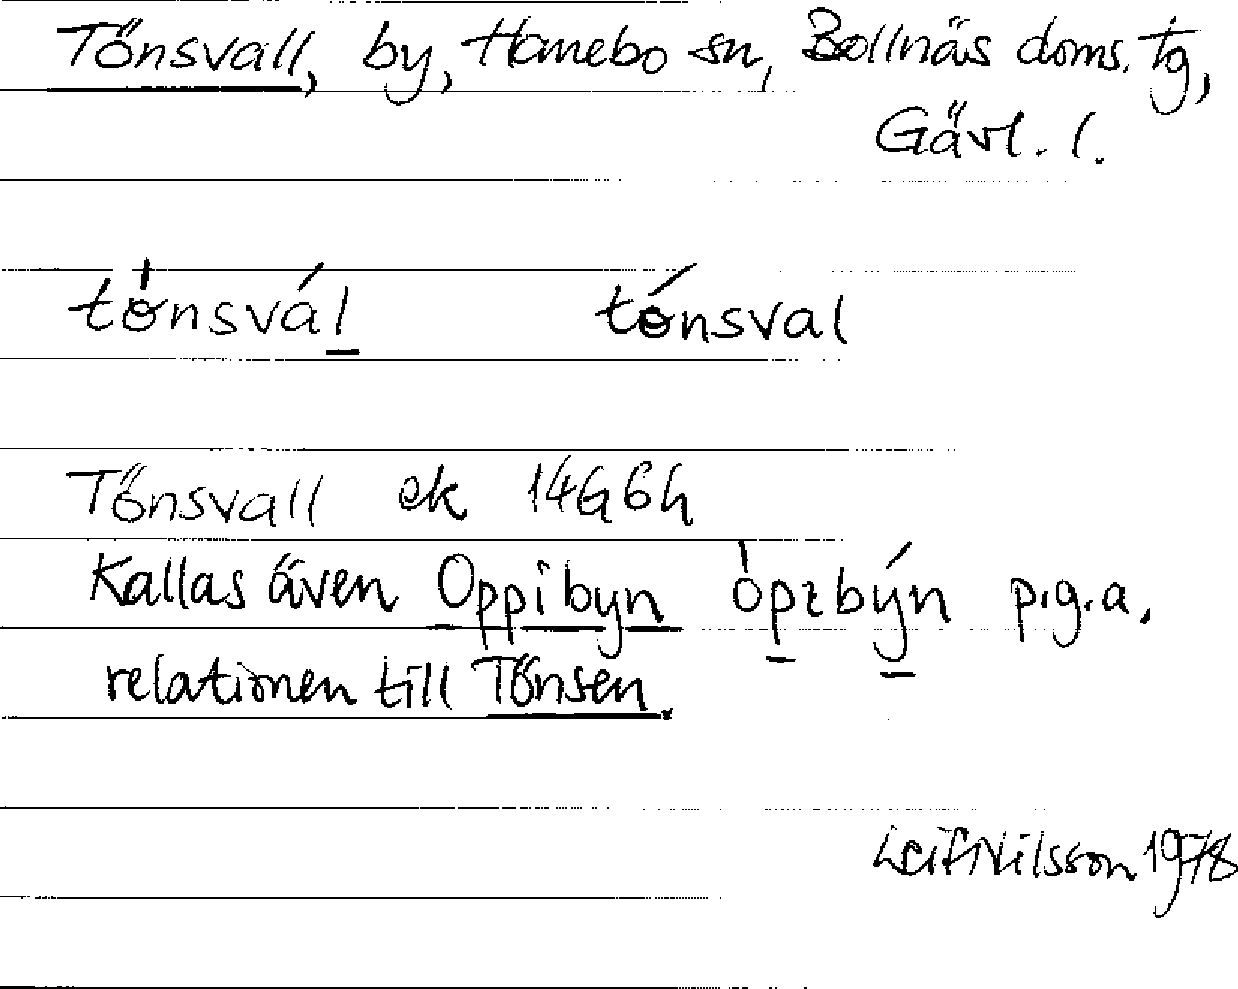 Tönsvall, by, Hanebo sn, Bollnäs doms. tg,
Gävl. l.
tɵ̍nsvál̠ tɵ́nsval
Tönsvall ek 14G6h
Kallas även Oppibyn òp̠ɪbý̠n p.g.a.
relationen till Tönsen.
Leif Nilsson 1978